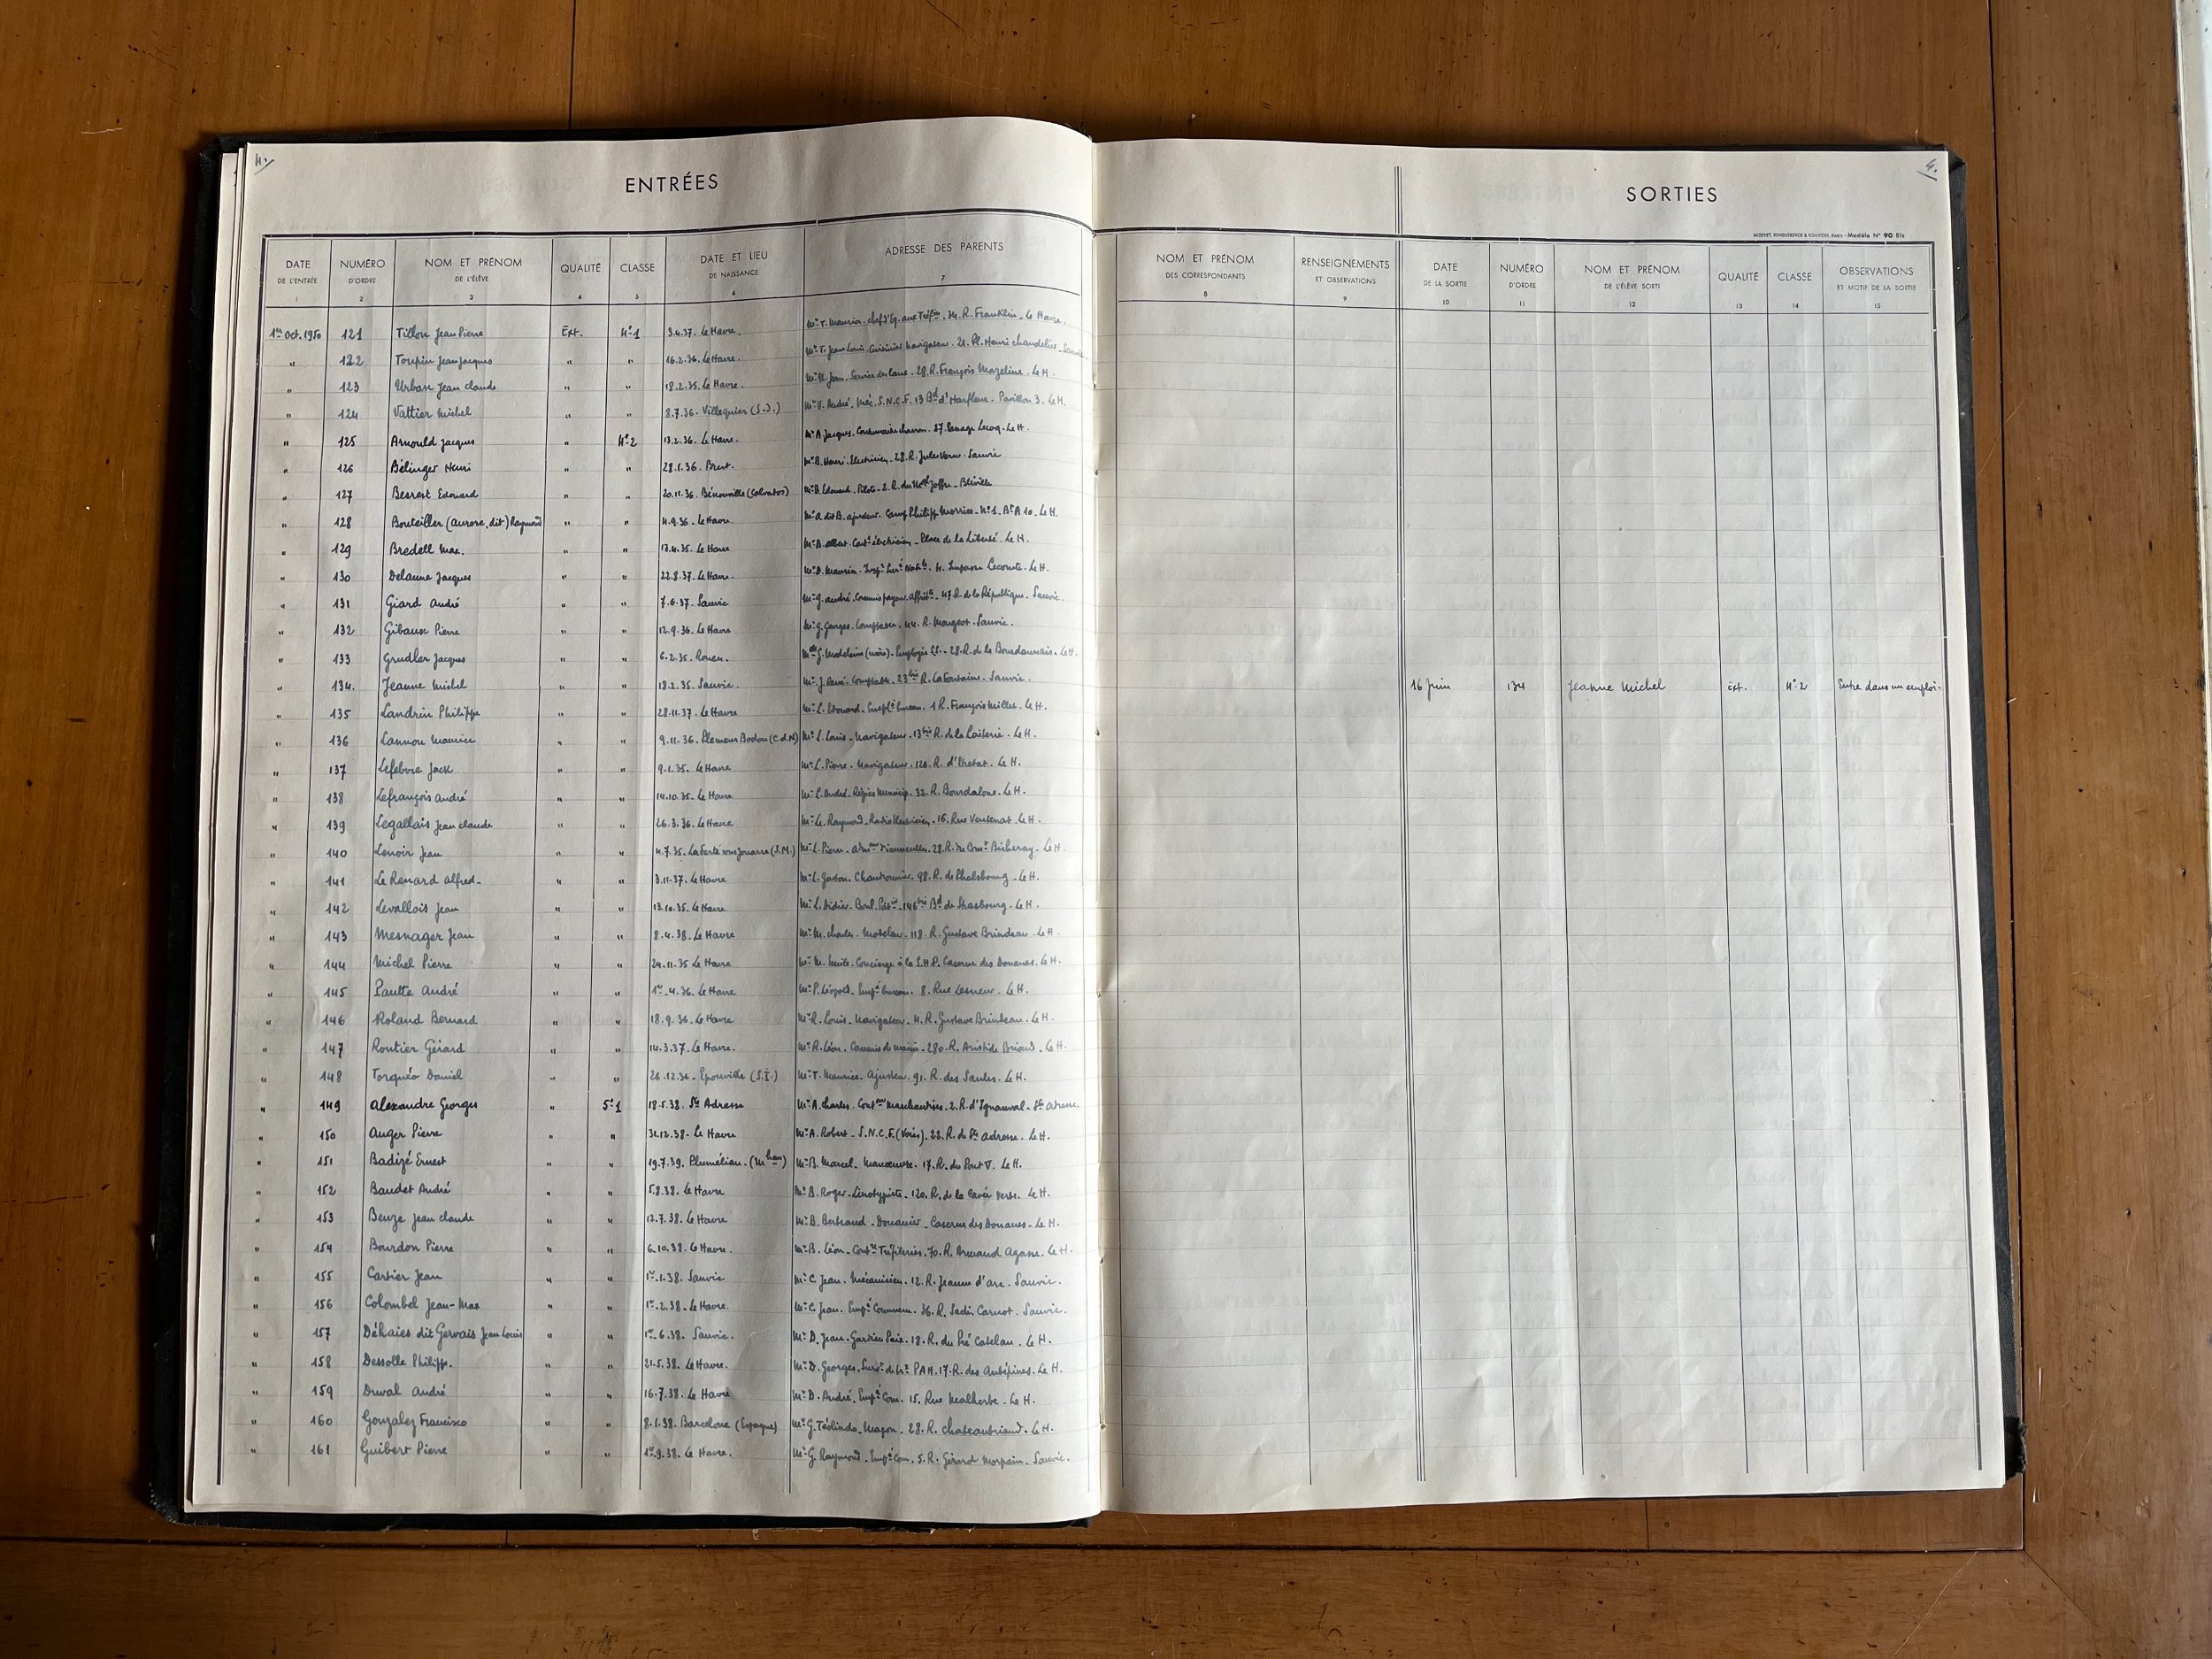 4.
ENTRÉES
DATE DE L'ENTRÉE 1
NUMÉRO D'ORDRE 2
NOM ET PRÉNOM DE L'ÉLÈVE 3
QUALITÉ 4
CLASSE 5
DATE ET LIEU DE NAISSANCE 6
ADRESSE DES PARENTS 7
1er Oct. 1950 121 Tillon Jean Pierre Ext. 4e1 3.4.37. Le Havre. Mr T. Maurice. 34. R. Franklin. Le Havre.
" 122 Toupin Jean Jacques " " 16.2.36. Le Havre. Mr T. Jean Louis. Cuisinier navigateur. 21. Pl. Henri Chandelier.
" 123 Urban Jean Claude " " 18.2.35. Le Havre. Mr U. Jean. Service des Eaux. 28. R. François Mazeline. Le H.
" 124 Vattier Michel " " 8.7.36. Villequier (S.I.) Mr V. André. Méc. S.N.C.F. 13 Bd d'Harfleur. Pavillon 3. Le H.
" 125 Arnould Jacques " 4e2 13.2.36. Le Havre. Mr A. Jacques. 37. Passage Lecoq. Le H.
" 126 Bélinger Henri " " 28.1.36. Brest. Mr B. Henri. Electricien. 28. R. Jules Verne. Sanvic
" 127 Besrest Edouard " " 20.11.36. Bénouville (Calvados) Mr B. Edouard. Pilote. 2. R. du Mal Joffre. Bléville
" 128 Bouteiller (Aurore, dit) Raymond " " 4.9.36. Le Havre. Mr A dit B. ajusteur. Camp Philipp Morriss. No 1. Bt A 10. Le H.
" 129 Bredell Max. " " 13.4.35. Le Havre Mr B. Albert. électricien. Place de la Liberté. Le H.
" 130 Delaune Jacques " " 22.8.37. Le Havre. Mr D. Maurice. 4. Impasse Lecomte. Le H.
" 131 Giard André " " 7.6.37. Sanvic Mr G. André. Commis payeur. 47 R. de la République. Sanvic.
" 132 Gibaux Pierre " " 12.9.36. Le Havre Mr G. Georges. Comptable. 44. R. Mongeot. Sanvic.
" 133 Grudler Jacques " " 6.2.35. Rouen. Mme G. Madeleine (mère). Employée 28. R. de la Bourdonnais. Le H.
" 134. Jeanne Michel " " 18.2.35. Sanvic. Mr J. René. Comptable. 23bis R. La Fontaine. Sanvic.
" 135 Landrin Philippe " " 28.11.37. Le Havre Mr L. Edouard. Emplé bureau. 1 R. François Millet. Le H.
" 136 Lannou Maurice " " 9.11.36. Plemeur Bodou (C.d.N) Mr L. Louis. Navigateur. 13bis R. de la Laiterie. Le H.
" 137 Lefebvre Jack " " 9.1.35. Le Havre Mr L. Pierre. Navigateur. 126. R. d'Etretat. Le H.
" 138 Lefrançois André " " 14.10.35. Le Havre Mr L. André. Régies Municip. 32. R. Bourdaloue. Le H.
" 139 Legallais Jean Claude " " 26.3.36. Le Havre Mr L. Raymond. Radioélectricien. 16. Rue Ventenat. Le H.
" 140 Lenoir Jean " " 4.7.35. La Ferté sous Jouarre (S.M.) Mr L. Pierre. 28. R. du Comt Bicheray. Le H.
" 141 Le Renard Alfred. " " 3.11.37. Le Havre Mr L. Gaston. Chaudronnier. 98. R. de Phalsbourg. Le H.
" 142 Levallois Jean " " 13.10.35. Le Havre Mr L. Didier. Boul. Pâtis. 146bis Bd de Strasbourg. Le H.
" 143 Mesnager Jean " " 8.4.38. Le Havre Mr M. Charles. Matelot. 118. R. Gustave Brindeau. Le H.
" 144 Michel Pierre " " 24.11.35 Le Havre Mr M. Concierge à la Caserne des Douanes. Le H.
" 145 Pautte André " " 1er.4.36. Le Havre Mr P. Léopold. Empé bureau. 8. Rue Lesueur. Le H.
" 146 Roland Bernard " " 18.9.36. Le Havre Mr R. Louis. Navigateur. 4. R. Gustave Brindeau. Le H.
" 147 Routier Gérard " " 14.3.37. Le Havre. Mr R. Léon. Commis de mairie. 280. R. Aristide Briand. Le H.
" 148 Torquéo Daniel " " 26.12.36. Epouville (S.I.) Mr T. Maurice. Ajusteur. 91. R. des Saules. Le H.
" 149 Alexandre Georges " 5e1 18.5.38. Ste Adresse Mr A. Charles. Marchandises. 2. R. d'Ignauval. Ste Adresse.
" 150 Auger Pierre " " 31.12.38. Le Havre Mr A. Robert. S.N.C.F. (Voies). 22. R. de Ste Adresse. Le H.
" 151 Badizé Ernest " " 19.7.39. Plumélian. (Mhan) Mr B. Marcel. Manœuvre. 17. R. du Pont V. Le H.
" 152 Baudet André " " 5.8.38. Le Havre Mr B. Roger. Linotypiste. 120. R. de la Cavée verte. Le H.
" 153 Beuze Jean Claude " " 12.7.38. Le Havre Mr B. Bertrand. Douanier. Caserne des Douanes. Le H.
" 154 Bourdon Pierre " " 6.10.38. Le Havre. Mr B. Léon. Tréfileries. 70. R. Armand Agasse. Le H.
" 155 Cartier Jean " " 1er.1.38. Sanvic Mr C. Jean. Mécanicien. 12. R. Jeanne d'arc. Sanvic.
" 156 Colombel Jean-Max " " 1er.2.38. Le Havre. Mr C. Jean. Empé Commerce. 36. R. Sadi Carnot. Sanvic.
" 157 Déhaies dit Gervais Jean Louis " " 1er.6.38. Sanvic. Mr D. Jean. Gardien Paix. 18. R. du Pré Catelan. Le H.
" 158 Dessolle Philippe. " " 21.5.38. Le Havre. Mr D. Georges. PAH. 17. R. des Aubépines. Le H.
" 159 Duval André " " 16.7.38. Le Havre Mr D. André. Empé Com. 15. Rue Malherbe. Le H.
" 160 Gonzalez Francisco " " 8.1.38. Barcelone (Espagne) Mr G. Téolindo. Maçon. 28. R. Chateaubriand. Le H.
" 161 Guibert Pierre " " 1er.9.38. Le Havre. Mr G. Raymond. Empé Com. 5. R. Gérard Morpain. Sanvic.
4.
SORTIES
Modèle N° 90 Bis
NOM ET PRÉNOM DES CORRESPONDANTS 8
RENSEIGNEMENTS ET OBSERVATIONS 9
DATE DE LA SORTIE 10
NUMÉRO D'ORDRE 11
NOM ET PRÉNOM DE L'ÉLÈVE SORTI 12
QUALITÉ 13
CLASSE 14
OBSERVATIONS ET MOTIF DE LA SORTIE 15
16 Juin 134 Jeanne Michel Ext. 4e2 Entre dans un emploi.